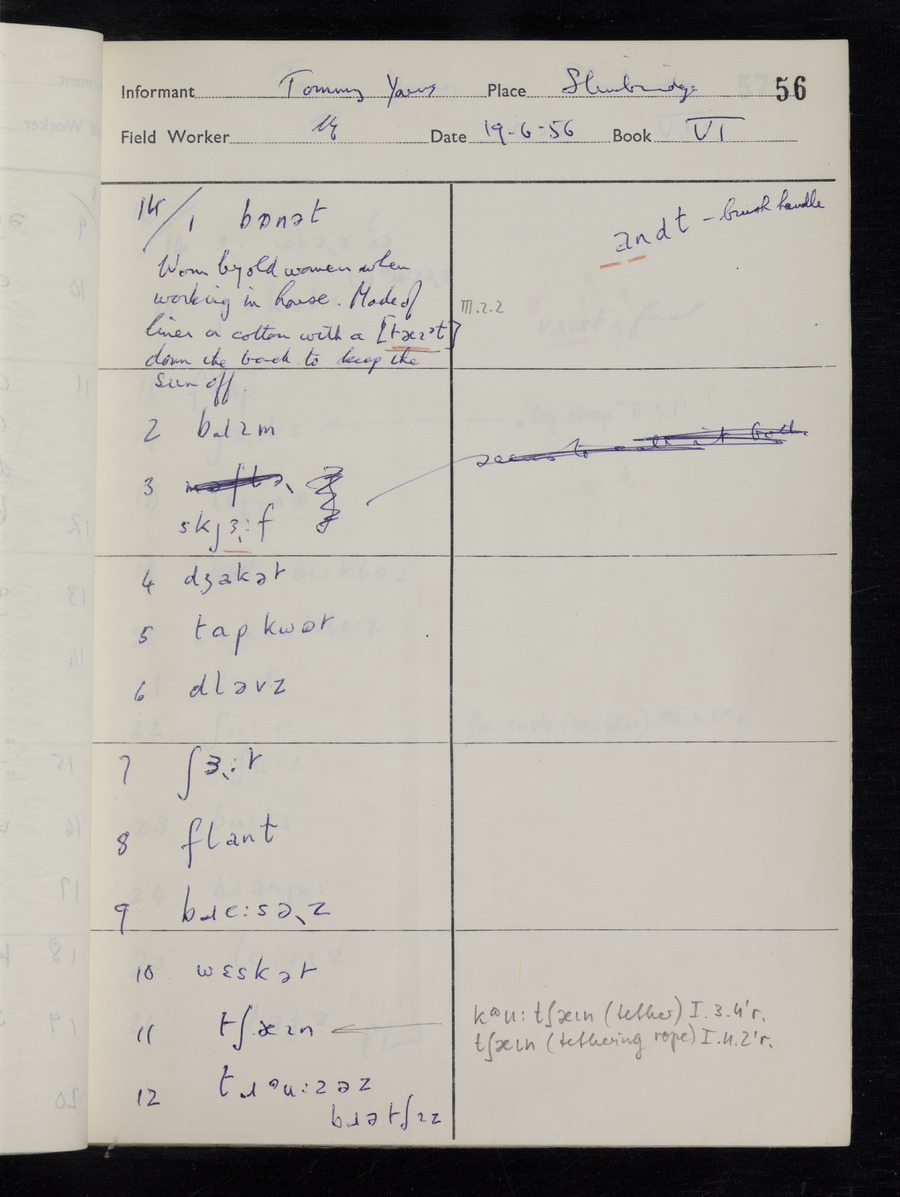 Informant Tommy Place Slimbridge 56
Field Worker Date 19-6-56 Book VI
14/ 1 bɒnət
andt - brush handle
Worn by old women when
working in house. Made of
linen or cotton with a
down the back to keep the
sun off.
III.2.2
2 bɹɪm
3
seems to call it both
skɟɜ:f
4 dʒakət
5 tap kwət
6 dlɔvz
7 ʃɜ:t
8 flant
9 bɹe:səz
10 wɛskət
11 tʃæɪn
kəu: tʃæɪn (tether) I.3.4'r.
tʃæɪn (tethering rope) I.4.2'r.
12 tɹəu:zəz
bɹətʃɪz